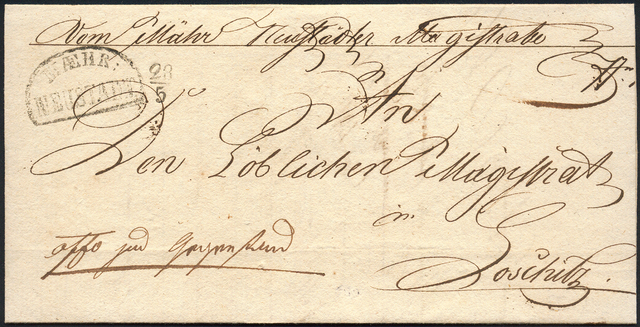 Vom Mähr Neustädter Magistrate
MÆHR:
NEUSTADT
28
5
An
Den Löblichen Magistrat
in
Loschitz